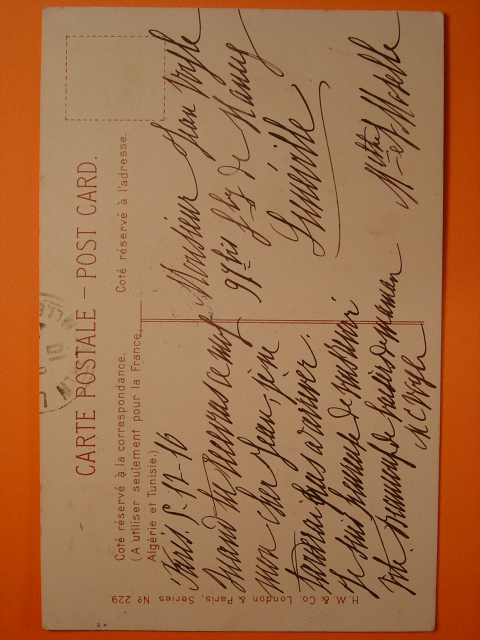 CARTE POSTALE – POST CARD.
Coté réservé à la correspondance.
(A utiliser seulement pour la France,
Algérie et Tunisie.)
Coté réservé à l'adresse.
Paris 5-12-10
Quand tu recevras ce mot
mon cher Jean, je ne
tarderai pas à arriver.
Je suis heureuse de
de baisers de maman
Monsieur Jean
99 bis fbg de Nancy
Lunéville
Mthe et Moselle
H. W. & Co. London & Paris. Series No 229